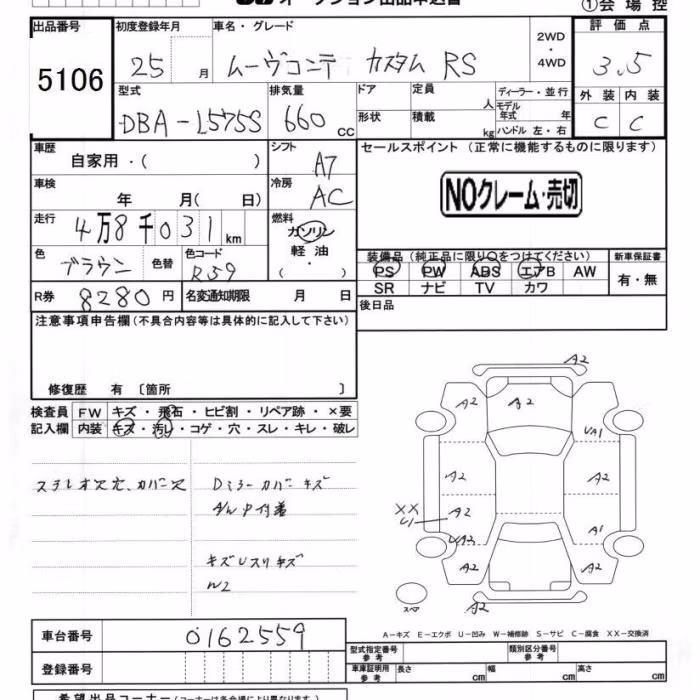 ①会場控
出品番号
5106
初度登録年月
25 月
車名・グレード
ムーヴコンテ カスタム RS
2WD
・
4WD
評価点
3.5
型式
DBA-L575S
排気量
660 cc
ドア
形状
定員
人
積載
kg
ディーラー・並行
モデル
年式 年
ハンドル 左・右
外装
内装
C
C
車歴
自家用・( )
シフト
A7
セールスポイント (正常に機能するものに限ります)
NOクレーム・売切
車検
年 月( 日)
冷房
AC
走行
4万8千031km
燃料
ガソリン
軽油
・
( )
色
ブラウン
色替
色コード
R59
装備品 (純正品に限り○をつけてください)
新車保証書
PS PW ABS エアB AW
SR ナビ TV カワ
有・無
R券
8280円
名変通知期限 月 日
後日品
注意事項申告欄 (不具合内容等は具体的に記入して下さい)
修復歴 有 〔箇所 〕
検査員
記入欄
FW キズ・飛石・ヒビ割・リペア跡・×要
内装 キズ・汚れ・コゲ・穴・スレ・キレ・破レ
ステレオ欠穴、カバー欠
Dミラーカバーキズ
キズUスリキズ
W2
A2
A2
A2
A2
UA1
A2
A2
XX
U1
A2
A1
UA2
A2
A2
A2
スペア
A-キズ E-エクボ U-凹み W-補修跡 S-サビ C-腐食 XX-交換済
車台番号
0162559
登録番号
型式指定番号
参考
類別区分番号
参考
車庫証明用
参考
長さ cm
幅 cm
高さ cm
希望出品コーナー (コーナーは各会場により異なります)